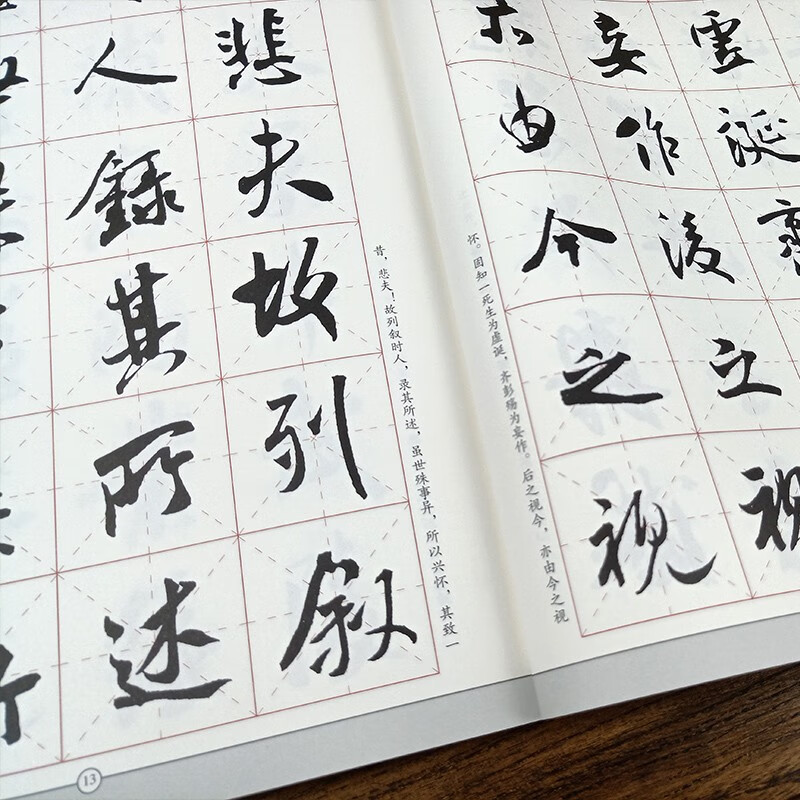 虛誕齊
妄作後之視
亦由今之視
怀。固知一死生为虚诞，齐彭殇为妄作。后之视今，亦由今之视
昔，悲夫！故列叙时人，录其所述，虽世殊事异，所以兴怀，其致一
悲夫故列叙
人錄其所述
13